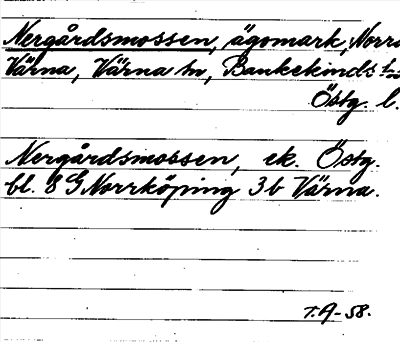 Nergårdsmossen, ägomark, Norra
Värna, Värna sn, Bankekinds
Östg. l.
Nergårdsmossen, ek. Östg.
bl. 8 G Norrköping 3b Värna.
T.A-58.